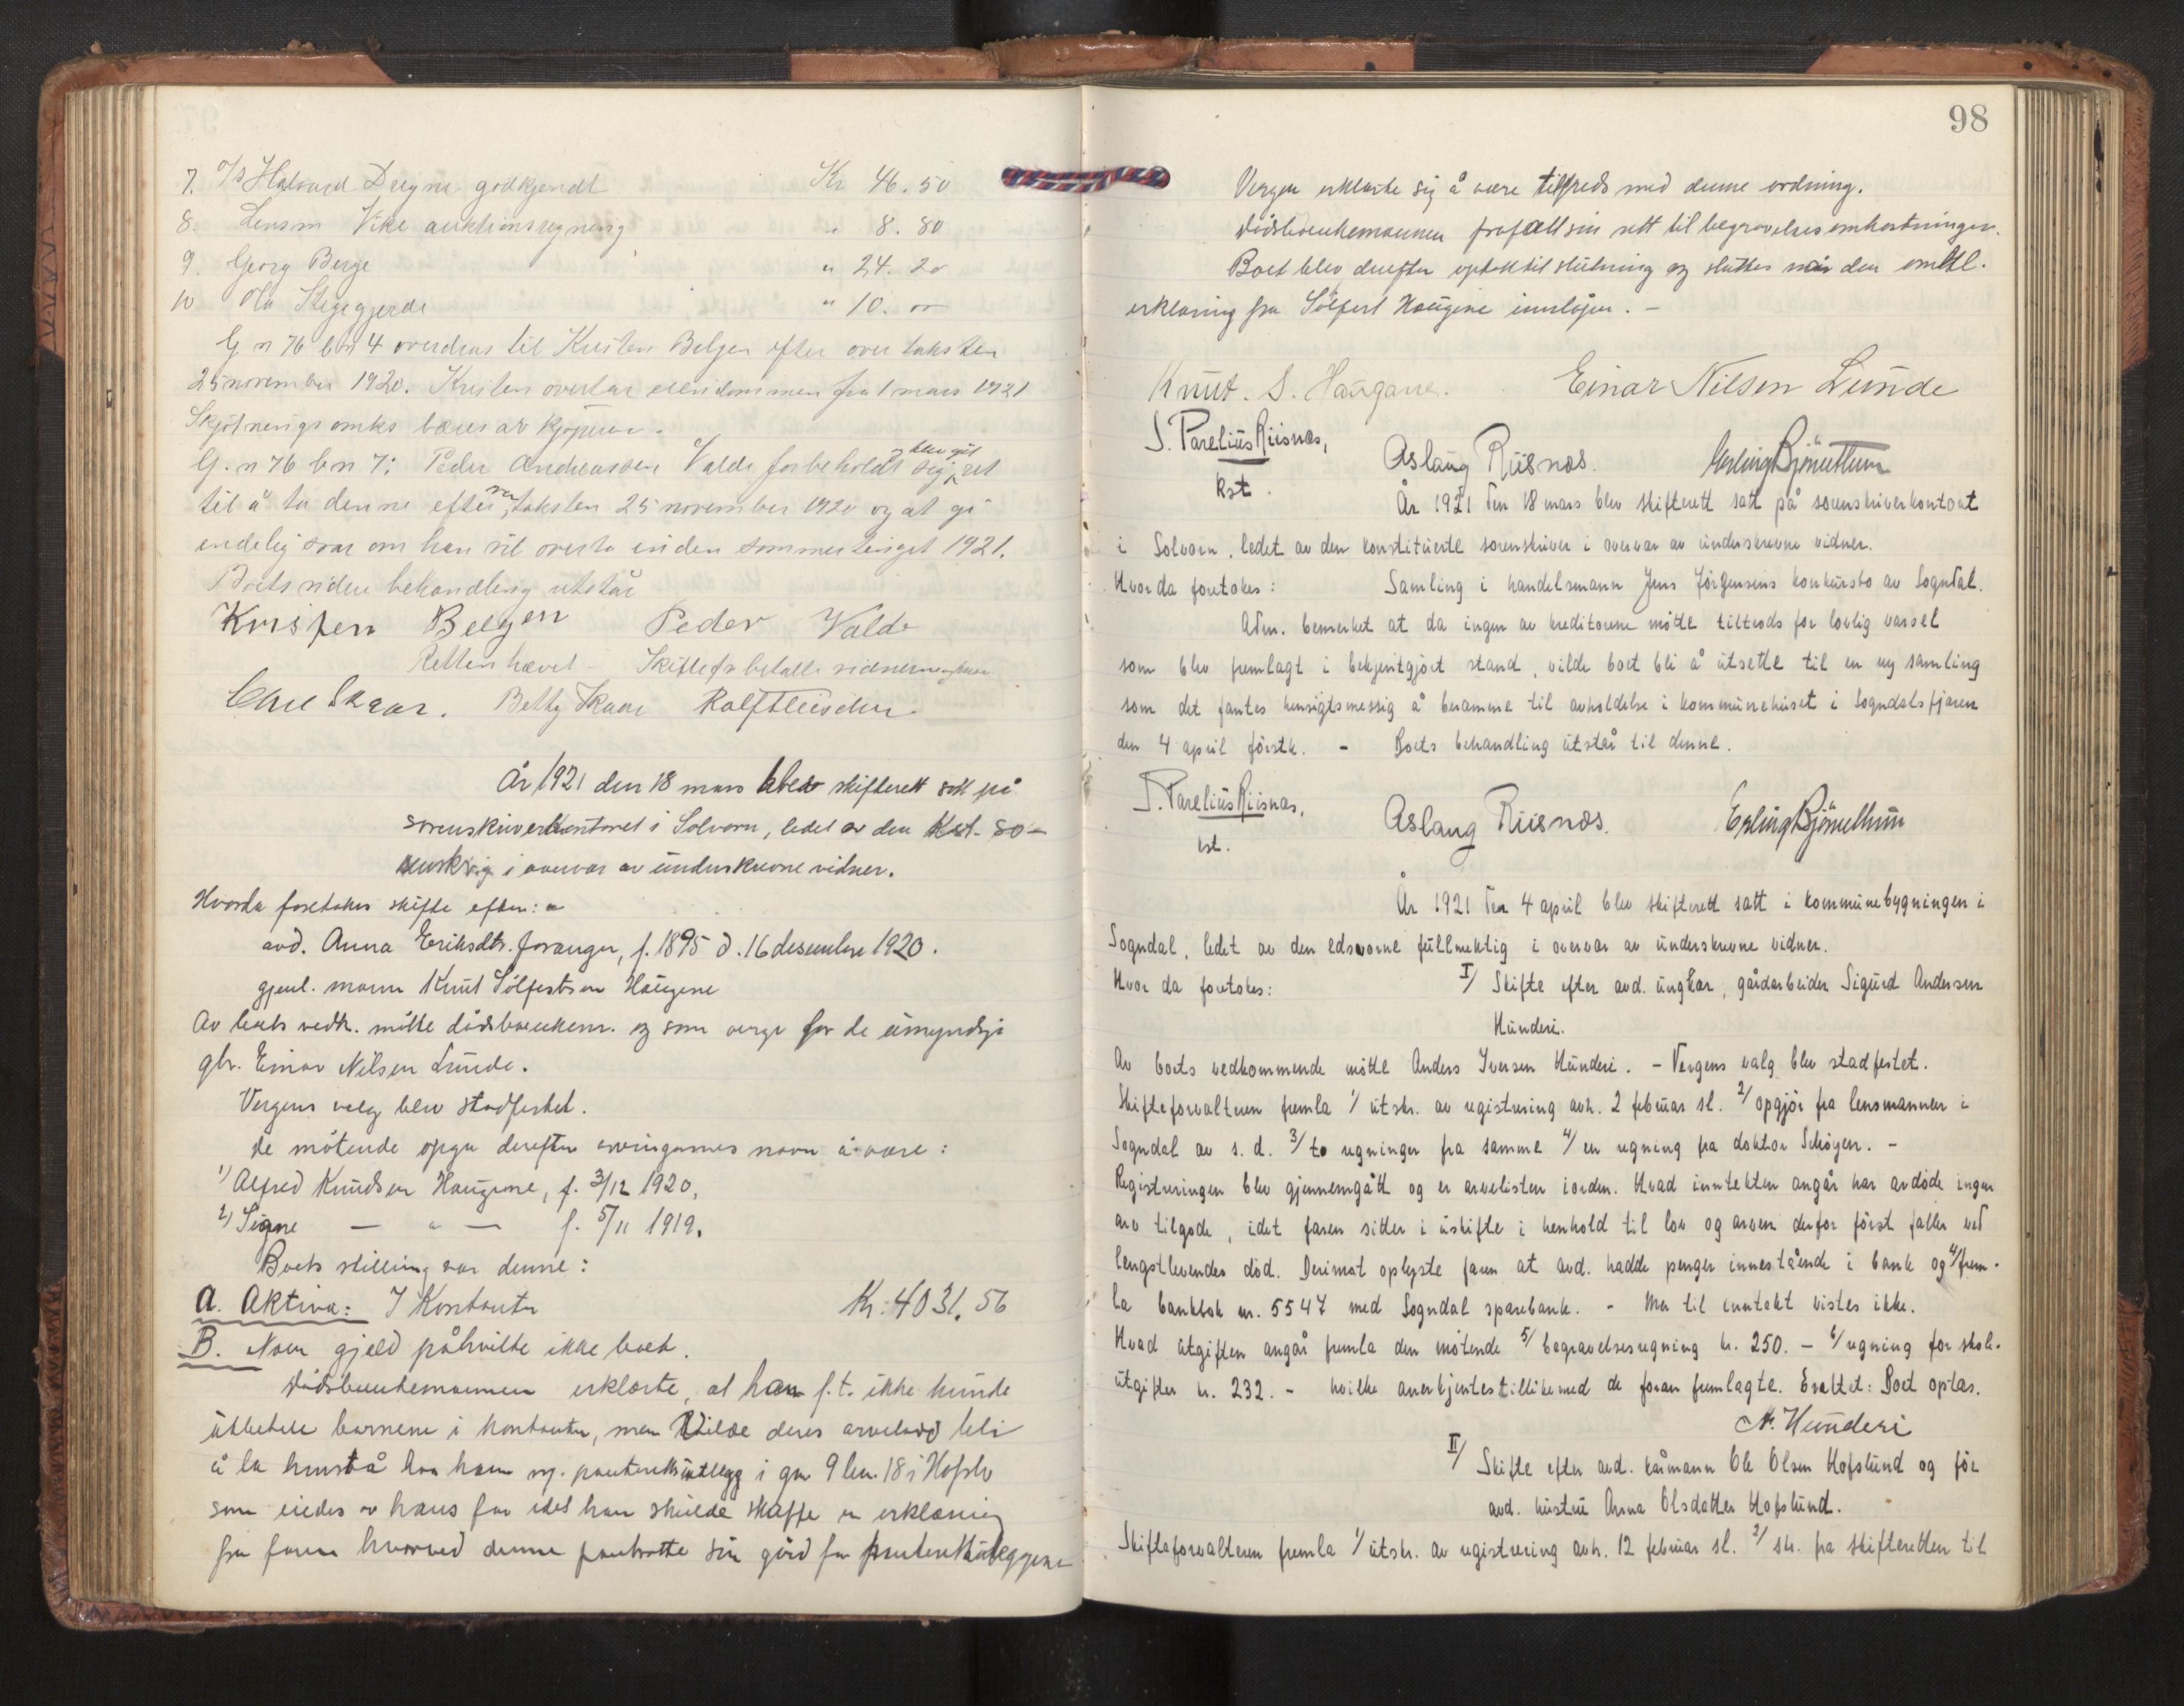 7. O/s Halvard Dregni godkjendt Kr 46.50
8. Lensm Vike auktionsregning " 8.80
9. Georg Berge " 24.20
10 Ola Stegegjerde " 10.00
G n 76 b n 4 overdras til Kristen Belgen efter over taksten
25 november 1920. Kristen overtar eiendommen fra 1 mars 1921
Skjötnings omks bæres av kjöperen.
G. n 76 b n 7: Peder Andreassen Valde forbeholdt sig, ret
til å ta denne efter taksten 25 november 1920 og at gi
endelig svar om han vil overta inden sommertinget 1921.
Boets videre behandling utstår
Kristen Belgen Peder Valde
Retten hævet - Skiftefr betalte vidnerne
Carl Skaar. Betty Skaar Rolf Fleischer
År 1921 den 18 mars blev skifterett satt på
sorenskriverkontoret i Solvorn, ledet av den kst. so-
renskriver i overvær av underskrevne vidner.
Hvorda foretokes skifte efter:
avd. Anna Eriksdtr. Foranger, f. 1895 d. 16 desember 1920.
gjenl. mann Knut Sölfestsen Haugene
Av boets vedk. mötte dödsboenkem. og som verge for de umyndige
gbr. Einar Nilsen Lunde.
Vergens valg blev stadfestet.
De mötende opga derefter arvingernes navn å være:
1) Alfred Knudsen Haugene, f. 3/12 1920.
2) Signe — " — f. 5/11 1919.
Boets stilling var denne:
A. Aktiva: I Kontanter Kr: 4031.56
B. Noen gjeld påhvilte ikke boet.
Dödsboenkemannen erklærte, at han f.t. ikke kunde
utbetale barnene i kontanter, men vilde deres arvelodd bli
å la henstå hos ham mot panterettsutlegg i gn. 9 bn. 18 i Hafslo
som eiedes av hans far idet han skulde skaffe en erklæring
fra faren hvorved denne pantsatte sin gård for panterettsutleggene
98
Vergen erklærte sig å være tilfreds med denne ordning.
Dödsboenkemannen frafallt sin rett til begravelsesomkostninger.
Boet blev derefter optatt til slutning og sluttes når den omhl.
erklæring fra Sölfest Haugene innlöper. -
Knut. S. Haugane. Einar Nilsen Lunde
S. Parelius Riisnæs, Aslaug Riisnæs. Erling Bjönethun
kst.
År 1921 den 18 mars blev skifterett satt på sorenskriverkontoret
i Solvorn, ledet av den konstituerte sorenskriver i overvær av underskrevne vidner.
Hvorda foretokes: Samling i handelsmann Jens Jörgensens konkursbo av Sogndal.
Adm. bemerket at da ingen av kreditorene mötte tiltrods for lovlig varsel
som blev fremlagt i bekjentgjort stand, vilde boet bli å utsette til en ny samling
som det fantes hensigtsmessig å beramme til avholdelse i kommunehuset i Sogndalsfjæren
den 4 april förstk. - Boets behandling utstår til denne.
S. Parelius Riisnæs, Aslaug Riisnæs. Erling Bjönethun
kst.
År 1921 den 4 april blev skifterett satt i kommunebygningen i
Sogndal, ledet av den edsvorne fullmektig i overvær av underskrevne vidner.
Hvor da foretokes: I/ Skifte efter avd. ungkar, gårdarbeider Sigurd Andersen
Hunderi.
Av boets vedkommende mötte Anders Iversen Hunderi. - Vergens valg blev stadfestet.
Skifteforvalteren fremla 1/ utskr. av registrering avh. 2 februar sl. 2/ opgjör fra lensmannen i
Sogndal av s. d. 3/ to regninger fra samme 4/ en regning fra doktor Schöyen. -
Registreringen blev gjennemgått og er arvelisten iorden. Hvad inntekten angår har avdöde ingen
arv tilgode, idet faren sitter i uskifte i henhold til lov og arven derfor först faller ved
lengstlevendes död. Derimot oplyste faren at avd. hadde penger innestående i bank og 4/ frem-
la bankbok nr. 5547 med Sogndal sparebank. - Mer til inntekt vistes ikke.
Hvad utgiften angår fremla den mötende 5/ begravelsesregning kr. 250. - 6/ regning for skole-
utgifter kr. 232. - hvilke anerkjentes tillikemed de foran fremlagte. Eraktet: Boet optas.
A. Hunderi
II/ Skifte efter avd. kårmann Ole Olsen Hofslund og för
avd. hustru Anna Olsdatter Hofslund.
Skifteforvalteren fremla 1/ utskr. av registrering avh. 12 februar sl. 2/ skr. fra skifteretten til